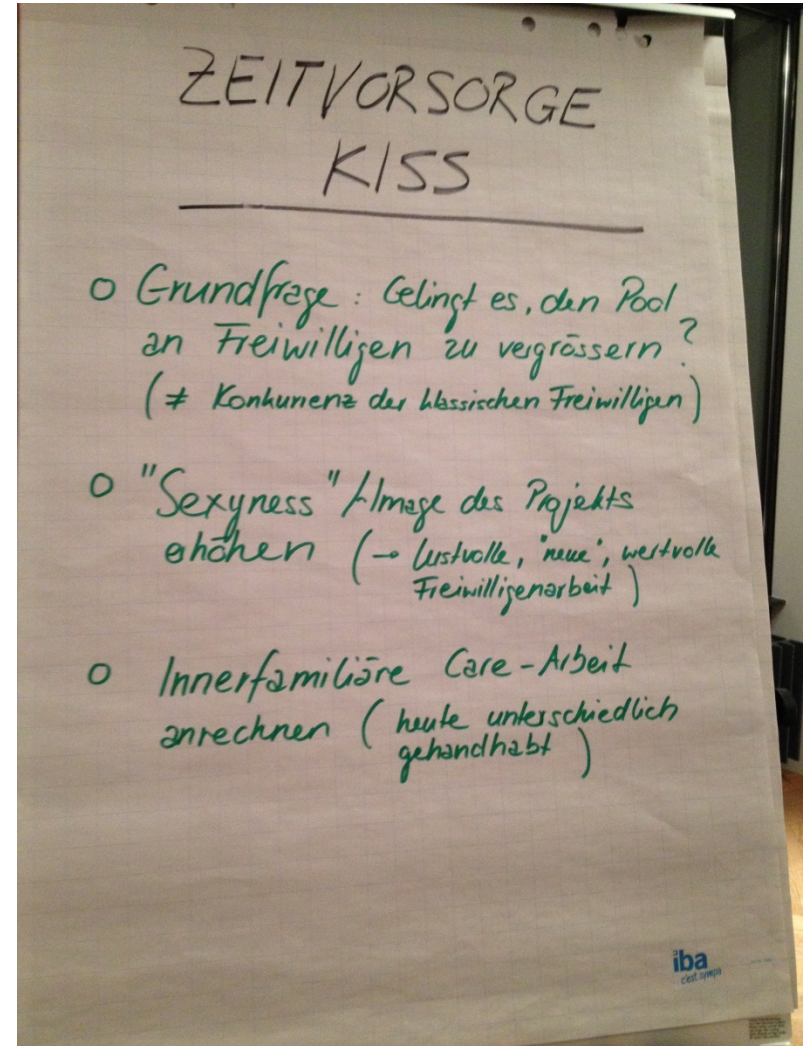 ZEITVORSORGE
KISS
o Grundfrage : Gelingt es, den Pool
an Freiwilligen zu vergrössern ?
(≠ Konkurrenz der klassischen Freiwilligen)
o "Sexyness"/Image des Projekts
erhöhen (→ lustvolle, "neue", wertvolle
Freiwilligenarbeit)
o Innerfamiliäre Care-Arbeit
anrechnen ( heute unterschiedlich
gehandhabt )
iba
c'est sympa